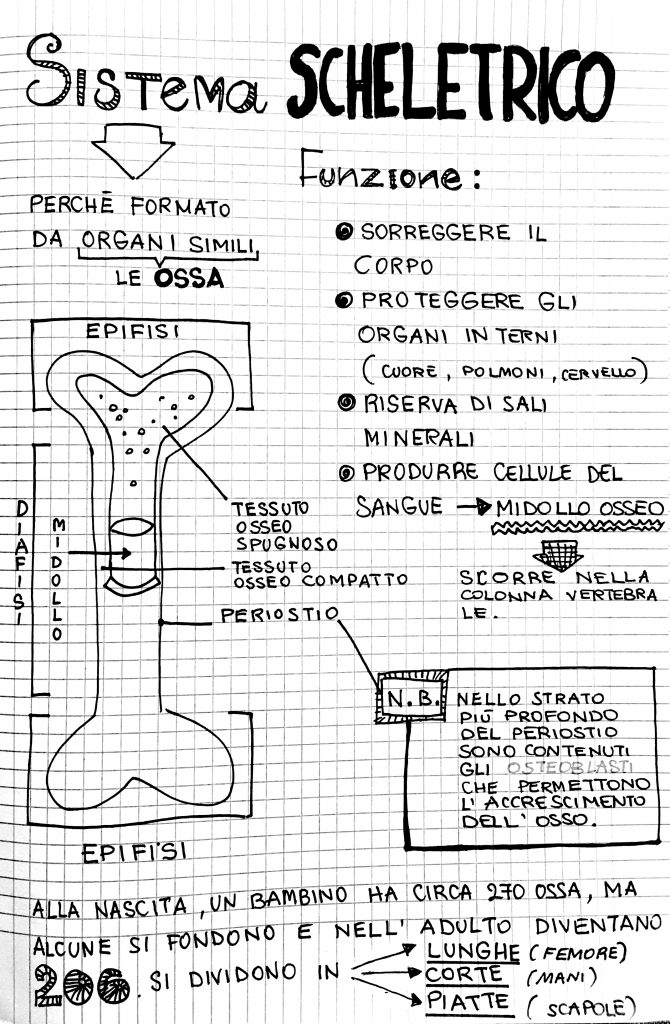 Sistema SCHELETRICO
PERCHÈ FORMATO
DA ORGANI SIMILI,
LE OSSA
Funzione:
SORREGGERE IL
CORPO
PROTEGGERE GLI
ORGANI INTERNI
(CUORE, POLMONI, CERVELLO)
RISERVA DI SALI
MINERALI
PRODURRE CELLULE DEL
SANGUE → MIDOLLO OSSEO
SCORRE NELLA
COLONNA VERTEBRA
LE.
EPIFISI
DIAFISI
MIDOLLO
TESSUTO
OSSEO
SPUGNOSO
TESSUTO
OSSEO COMPATTO
PERIOSTIO
EPIFISI
N.B. NELLO STRATO
PIÙ PROFONDO
DEL PERIOSTIO
SONO CONTENUTI
GLI OSTEOBLASTI
CHE PERMETTONO
L'ACCRESCIMENTO
DELL'OSSO.
ALLA NASCITA, UN BAMBINO HA CIRCA 270 OSSA, MA
ALCUNE SI FONDONO E NELL'ADULTO DIVENTANO
206. SI DIVIDONO IN
LUNGHE (FEMORE)
CORTE (MANI)
PIATTE (SCAPOLE)